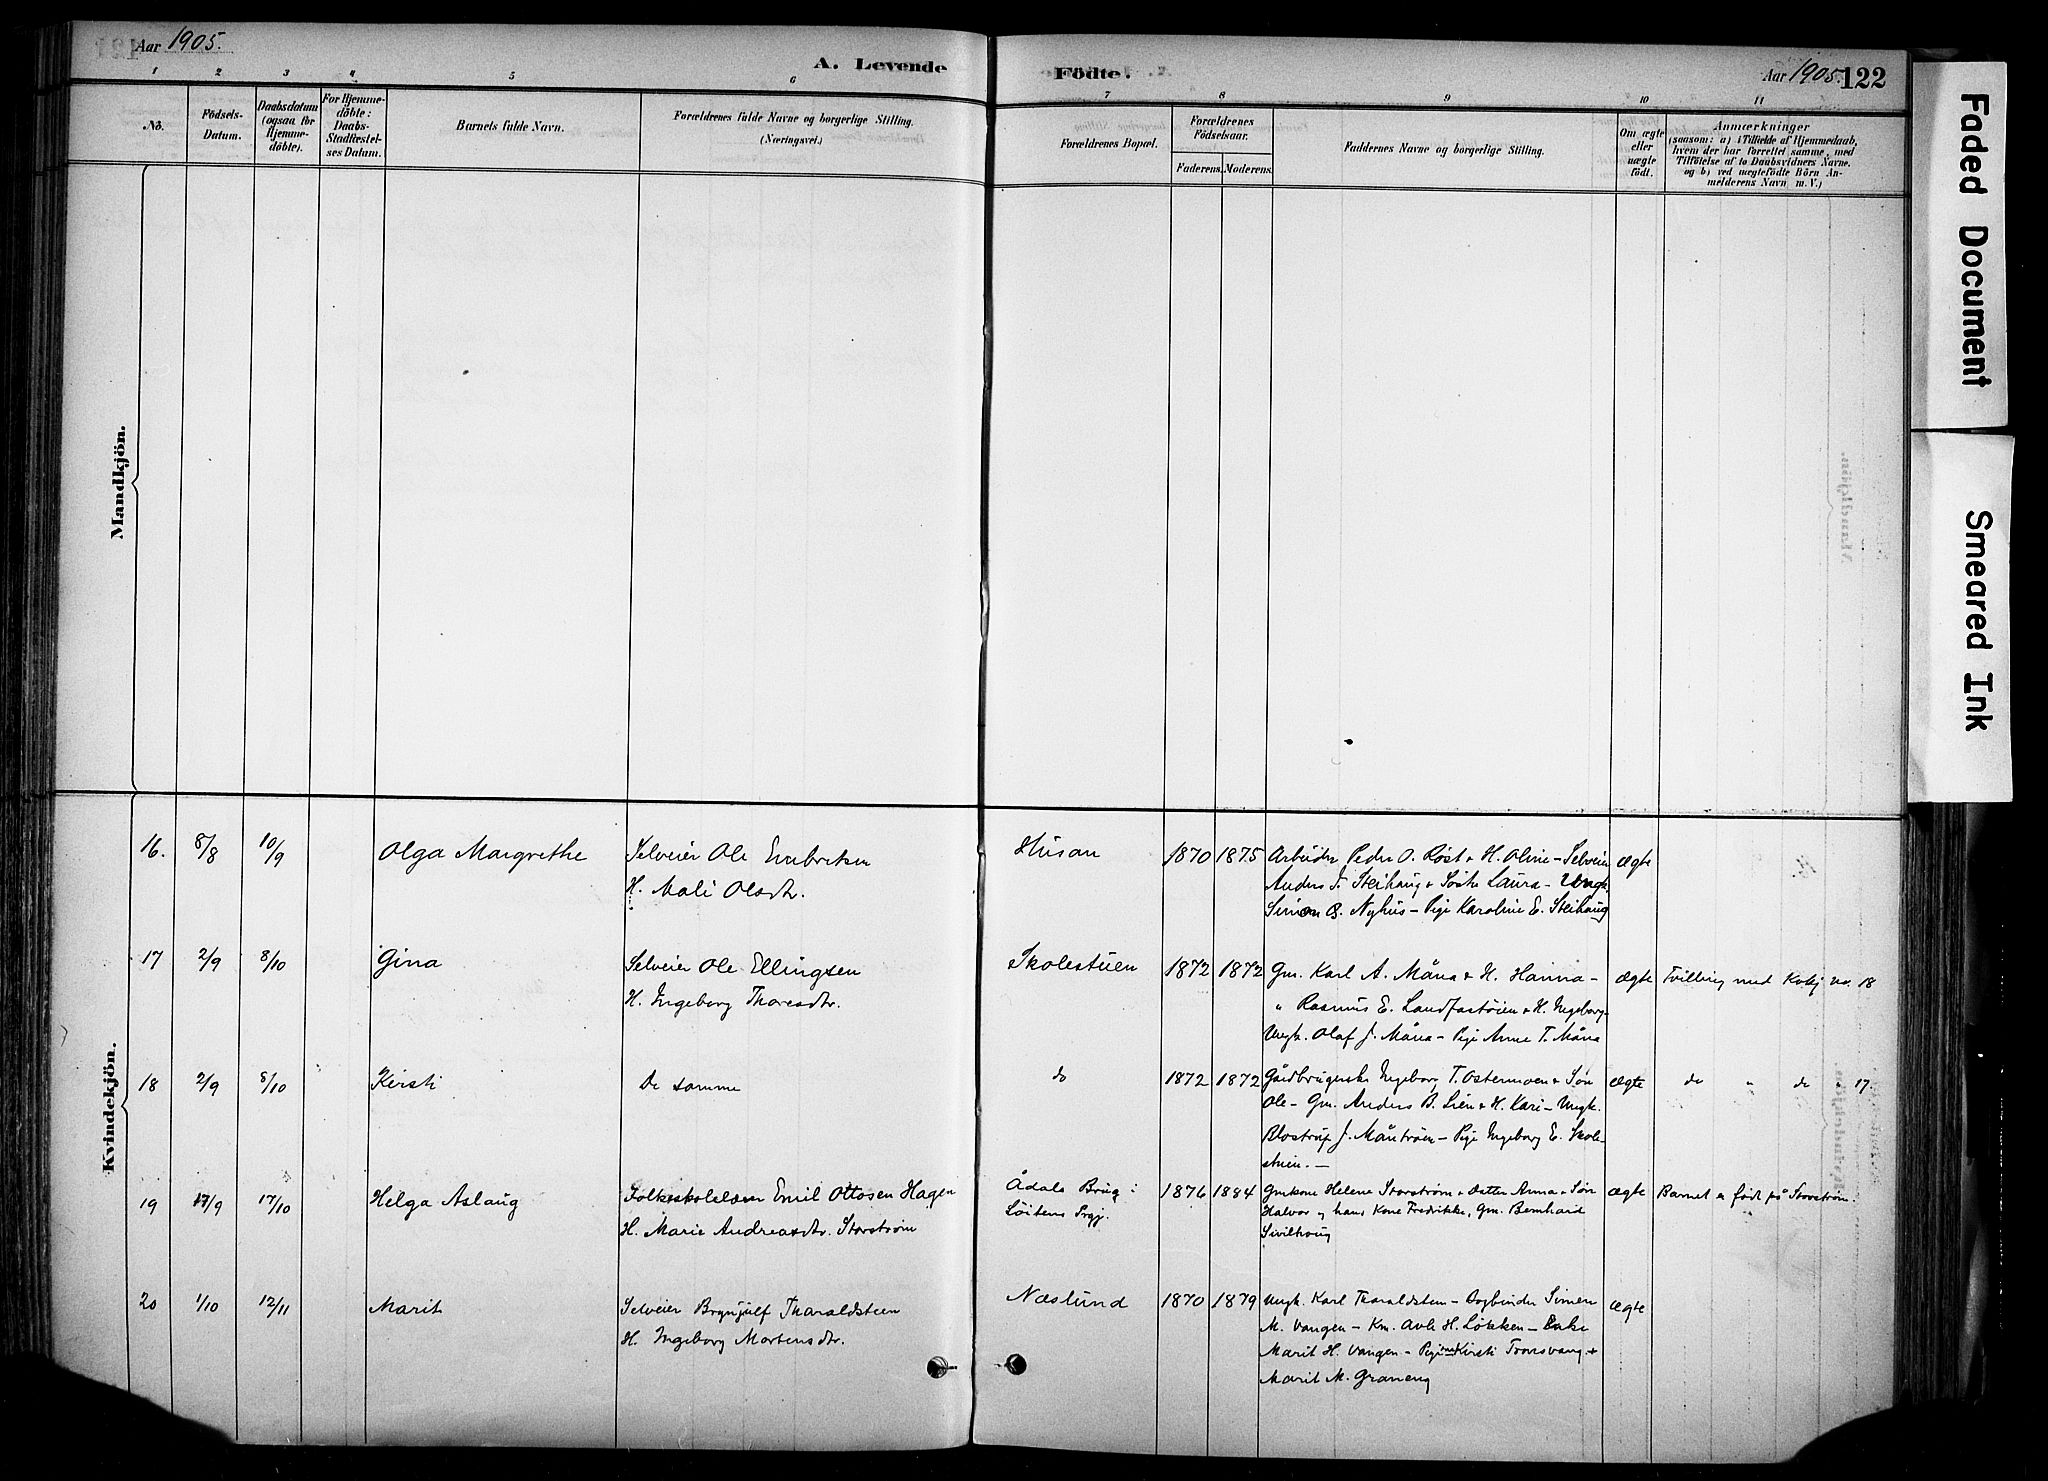 Aar 1905.
A. Levende
Födte.
Aar 1905. 122
1 2 3 4 5 6
7 8 9 10 11
No.
Födsels-
Datum.
Daabsdatum
(ogsaa for
Hjemme-
döbte).
For Hjemme-
döbte:
Daabs-
Stadfæstel-
ses Datum.
Barnets fulde Navn.
Forældrenes fulde Navne og borgerlige Stilling.
(Næringsvei.)
Forældrenes Bopæl.
Forældrenes
Födselsaar.
Faderens. Moderens.
Faddernes Navne og borgerlige Stilling.
Om ægte
eller
uægte
födt.
Anmærkninger
(saasom: a) i Tilfælde af Hjemmedaab,
hvem der har forrettet samme, med
Tilföielse af to Daabsvidners Navne.
og b) ved uægtefödte Börn An-
melderens Navn m. V.)
Mandkjön.
Kvindekjön.
16. 8/8 10/9 Olga Margrethe Selveier Ole Embretsen Husan 1870 1875 Arbeider Peder O. Røst + H. Oline - Selveier ægte
H. Mali Olsdtr. Anders J. Steihaug + Søster Laura - Ungk.
Simon B. Nyhus - Pige Karoline E. Steihaug
17 2/9 8/10 Gina Selveier Ole Ellingsen Skolestuen 1872 1872 Gm. Karl A. Måna + H. Hanna - ægte Tvilling med Kvkj no. 18
H. Ingeborg Thoresdtr. " Rasmus E. Landfastøien + H. Ingeborg-
Ungk. Olaf J. Måna - Pige Anne T. Måna
18 2/9 8/10 Kirsti De samme do 1872 1872 Gårdbrugerske Ingeborg T. Ostermoen + Søn ægte do " do " 17.
Ole - Gm. Anders B. Lien + H. Kari - Ungk.
J. Måntrøen - Pige Ingeborg E. Skole-
stuen. -
19 17/9 17/10 Helga Aslaug Folkeskolelærer Emil Ottosen Hagen Ådals Brug i 1876 1884 Gmkone Helene Storstrøm + Datter Anna + Søn ægte Barnet er født på Storstrøm.
H. Marie Andreasdtr. Storstrøm Løitens Prgj. Halvor og hans Kone Fredrikke, Gm. Bernhard
Sivilhaug
20 1/10 12/11 Marit Selveier Brynjulf Tharaldsteen Næslund 1870 1879 Ungk. Karl Tharaldsteen - Bogbinder Simen ægte
H. Ingeborg Mortensdtr. M. Vangen - Km. Avle H. Løkken - Enke
Marit H. Vangen - Pigerne Kirsti Tronsvang +
Marit M. Graneng
Faded Document
Smeared Ink